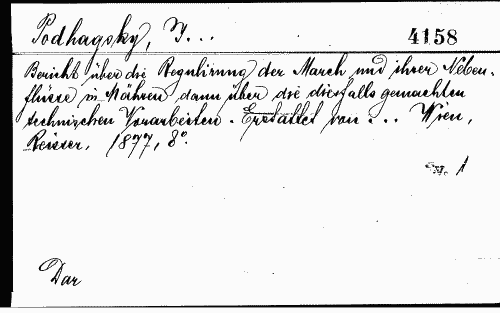 Podhagsky, J...
4158
Bericht über die Regulirung der March und ihrer Neben-
flüsse in Mähren dann über die diesfalls gemachten
technischen Vorarbeiten. Erstattet von ... Wien,
Reisser, 1877, 8°.
1
Dar